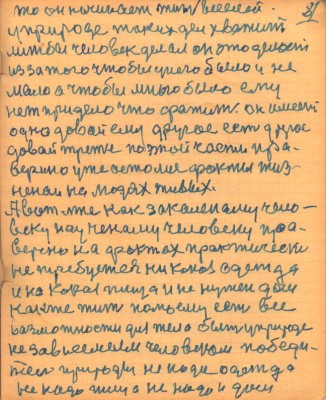 то он начинает жить веселей.
у природе таких дел хватит
лишь бы человек делал он это делает
из за того чтобы у него было и не
мало а чтобы много было ему
нет придело что хватит. он имеет
одно давай ему другое есть другое
давай третье по этой части пра
верино уже остолие факты жиз
неная на людях живых.
А вот мне как закаленаму чело
веку научному человеку про
верено на фактах практически
не требуется никокоя одежда
и на кокоя пища и не нужен дом
как же жит по моему ест все
возможности для тела быть у природе
независемым человеком победи
тел природы не надо одежда
не надо пища не надо и дом